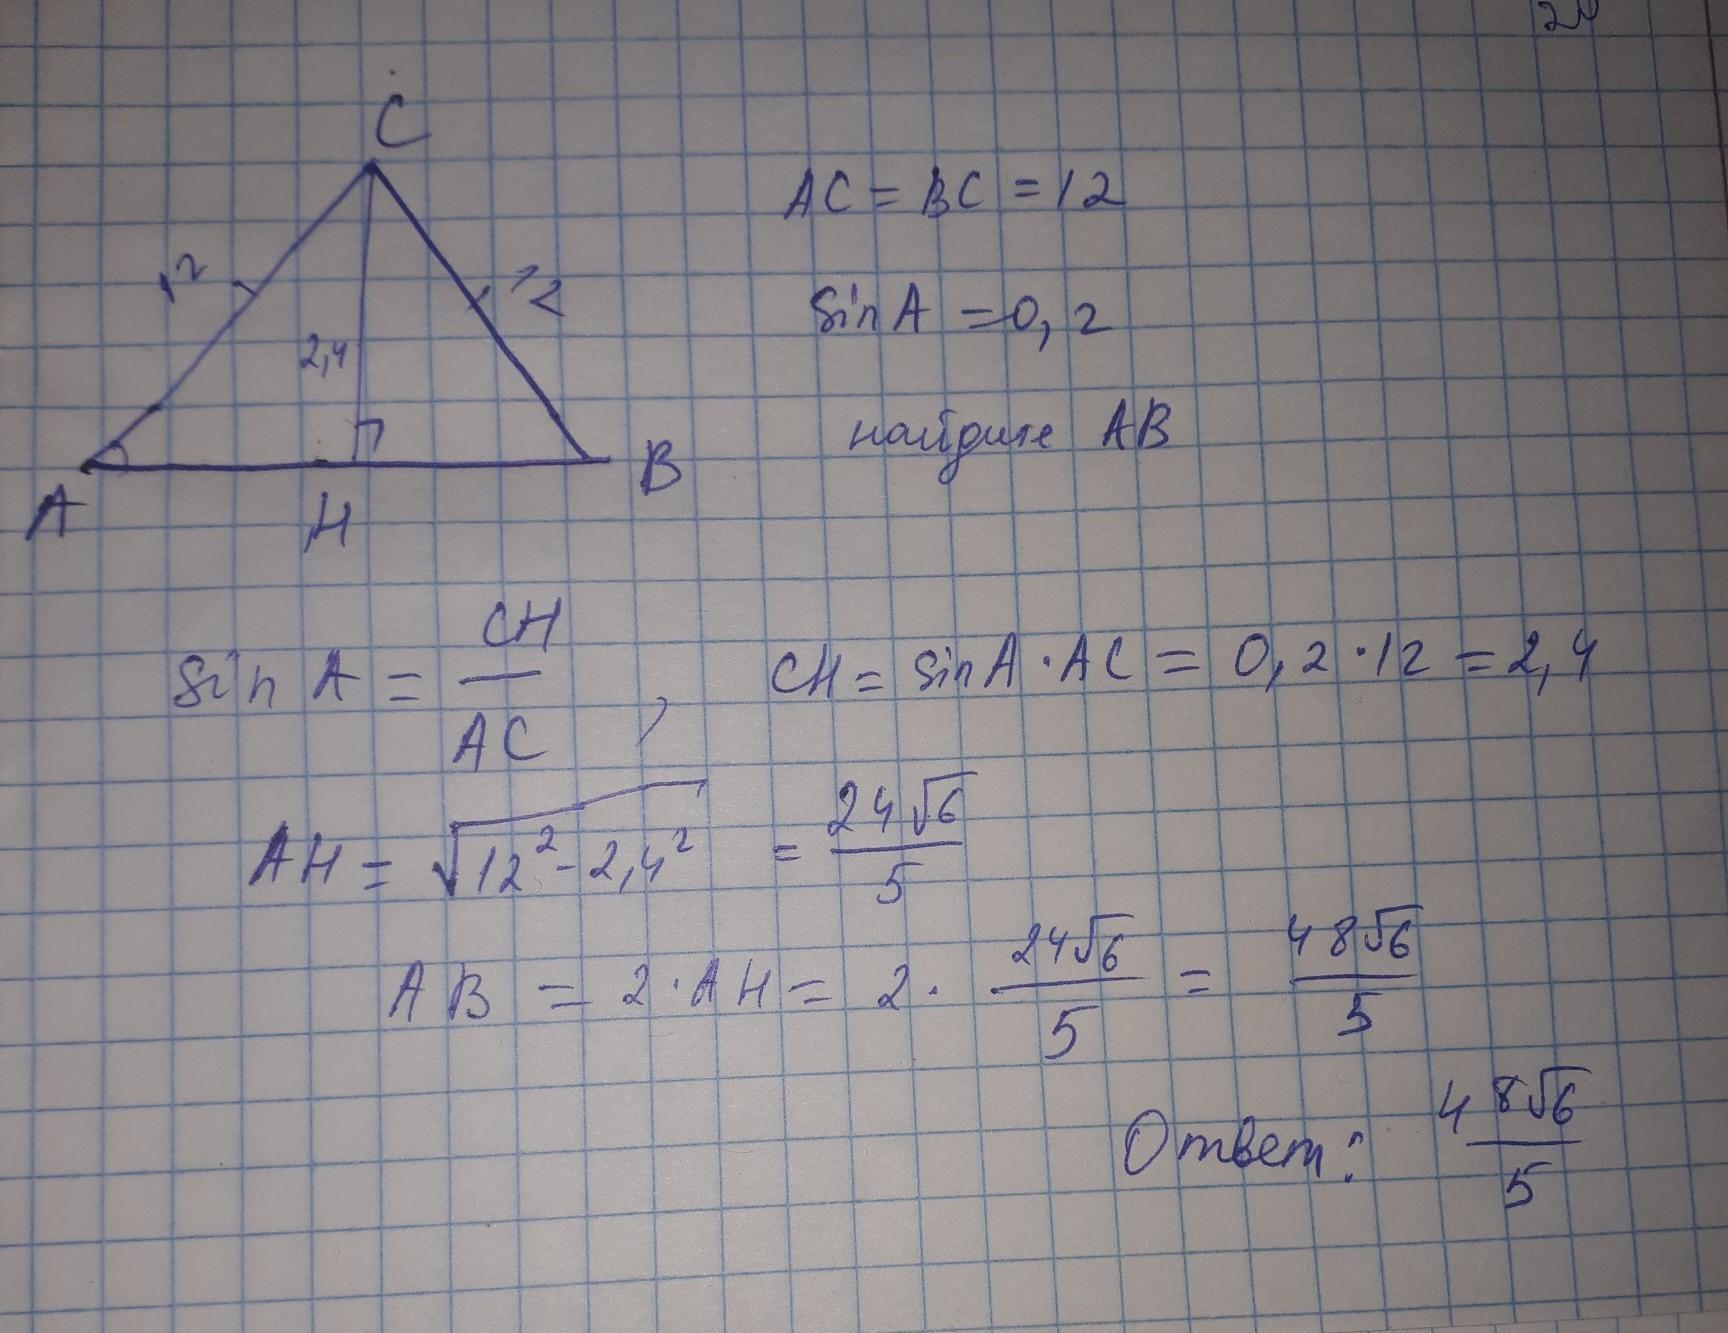 20
C
AC = BC = 12
12
12
sin A = 0,2
2,4
найдите AB
A
H
B
sin A = CH/AC , CH = sin A · AC = 0,2 · 12 = 2,4
AH = √(12² - 2,4²) = 24√6/5
AB = 2 · AH = 2 · 24√6/5 = 48√6/5
Ответ: 48√6/5